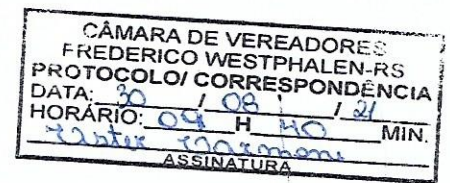 CÂMARA DE VEREADORES
FREDERICO WESTPHALEN-RS
PROTOCOLO/ CORRESPONDÊNCIA
DATA: 30 / 08 / 21
HORÁRIO: 09 H 40 MIN.
ASSINATURA